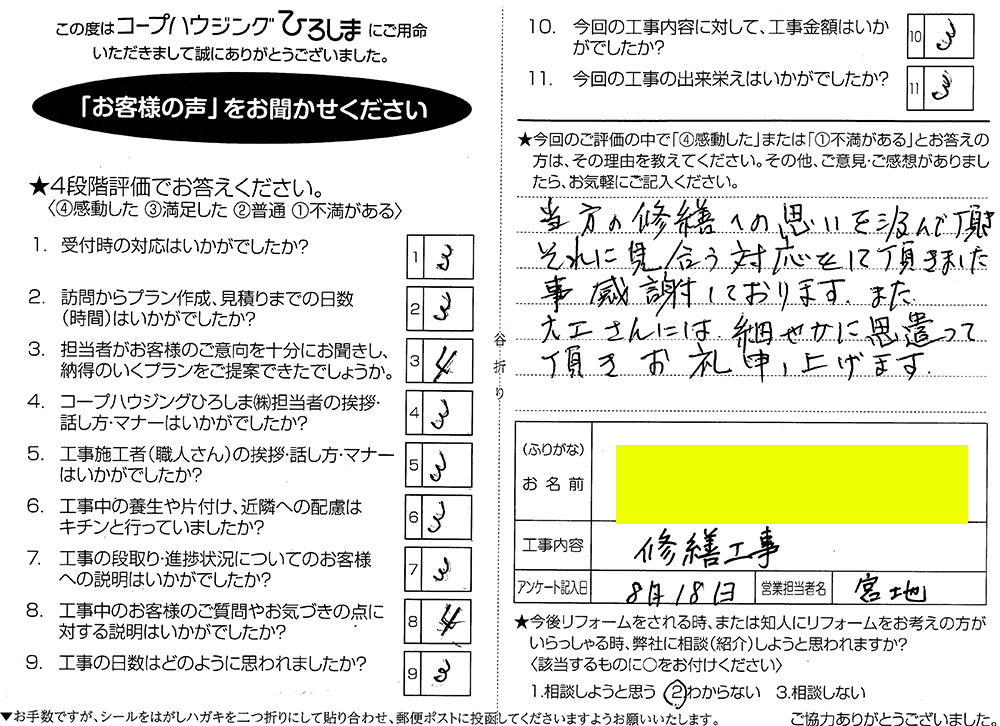 この度はコープハウジングひろしまにご用命
いただきまして誠にありがとうございました。
「お客様の声」をお聞かせください
★4段階評価でお答えください。
〈④感動した ③満足した ②普通 ①不満がある〉
1. 受付時の対応はいかがでしたか?
1 3
2. 訪問からプラン作成、見積りまでの日数
(時間)はいかがでしたか?
2 3
3. 担当者がお客様のご意向を十分にお聞きし、
納得のいくプランをご提案できたでしょうか。
3 4
4. コープハウジングひろしま㈱担当者の挨拶・
話し方・マナーはいかがでしたか?
4 3
5. 工事施工者(職人さん)の挨拶・話し方・マナー
はいかがでしたか?
5 3
6. 工事中の養生や片付け、近隣への配慮は
キチンと行っていましたか?
6 3
7. 工事の段取り・進捗状況についてのお客様
への説明はいかがでしたか?
7 3
8. 工事中のお客様のご質問やお気づきの点に
対する説明はいかがでしたか?
8 4
9. 工事の日数はどのように思われましたか?
9 3
谷折り
10. 今回の工事内容に対して、工事金額はいか
がでしたか?
10 3
11. 今回の工事の出来栄えはいかがでしたか?
11 3
★今回のご評価の中で「④感動した」または「①不満がある」とお答えの
方は、その理由を教えてください。その他、ご意見・ご感想がありまし
たら、お気軽にご記入ください。
当方の修繕への思いを汲んで頂き
それに見合う対応をして頂きました
事感謝しております。また
大工さんには、細やかに思遣って
頂きお礼申し上げます。
(ふりがな)
お名前
工事内容 修繕工事
アンケート記入日 8月18日 営業担当者名 宮地
★今後リフォームをされる時、または知人にリフォームをお考えの方が
いらっしゃる時、弊社に相談(紹介)しようと思われますか?
〈該当するものに○をお付けください〉
1.相談しようと思う ②わからない 3.相談しない
▼お手数ですが、シールをはがしハガキを二つ折りにして貼り合わせ、郵便ポストに投函してくださいますようお願いいたします。
ご協力ありがとうございました。